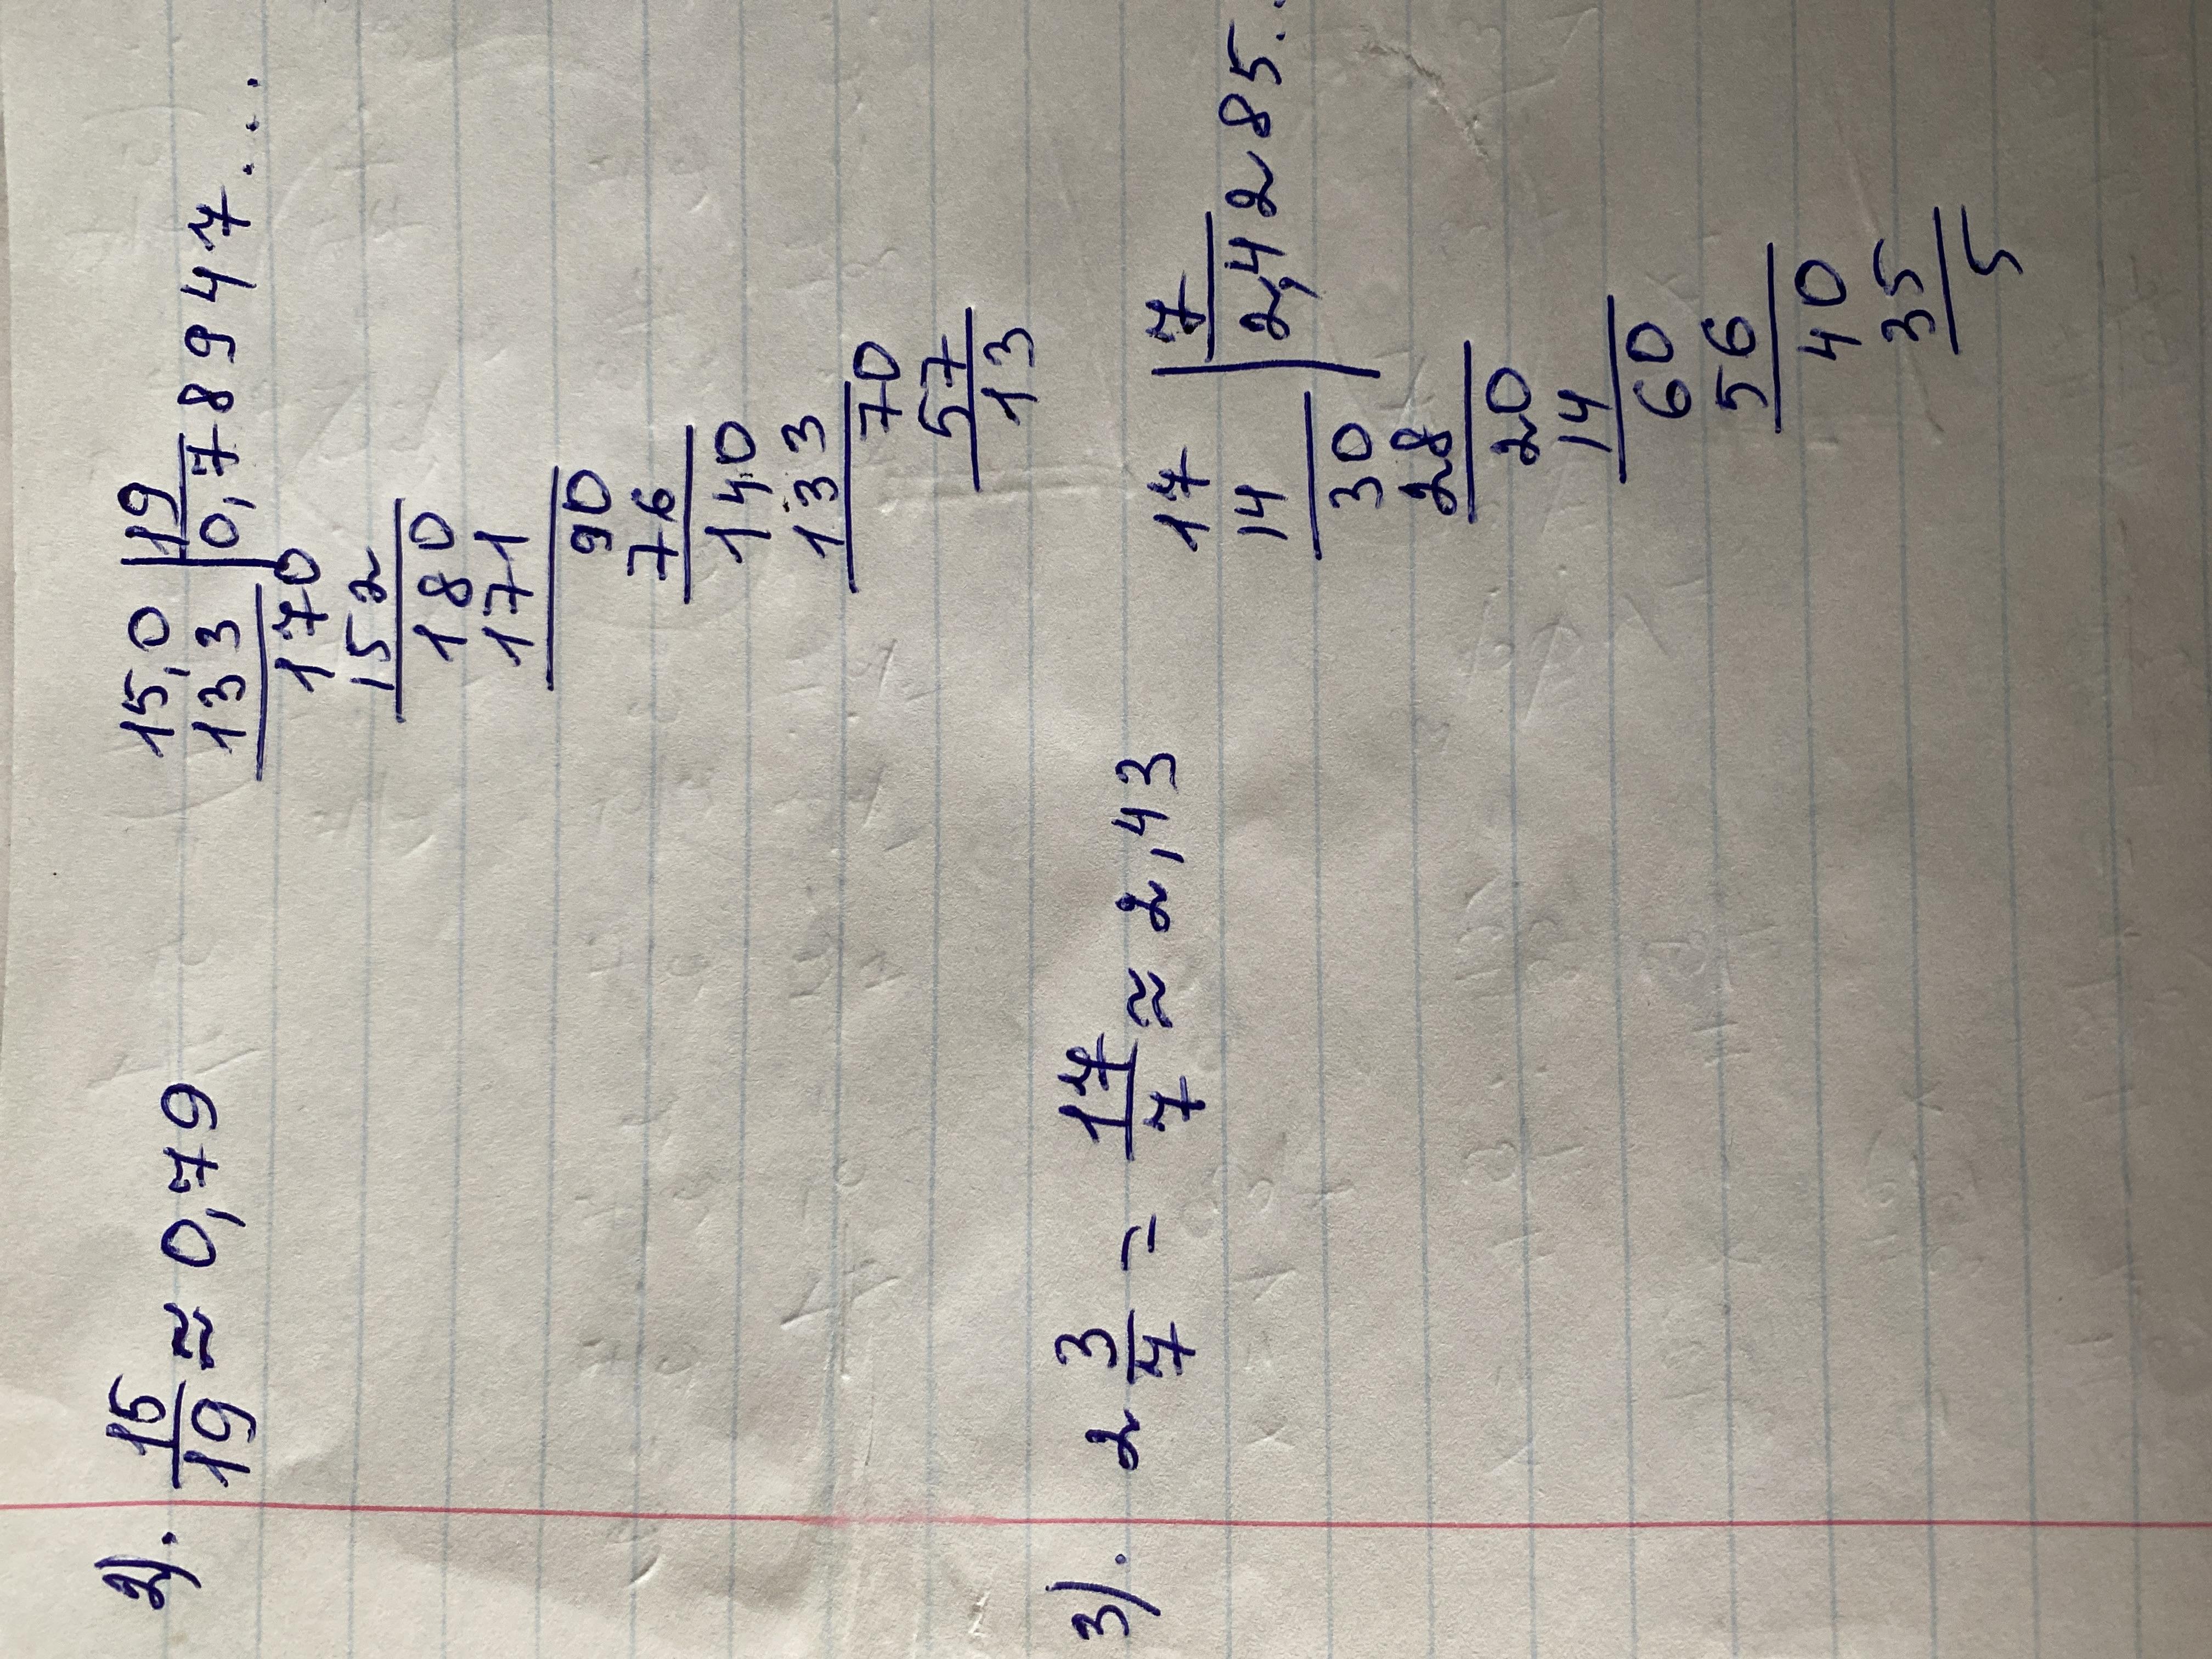 2). 15/19 ≈ 0,79
15,0 | 19
133 | 0,78947....
170
152
180
171
90
76
140
133
70
57
13
3). 2 3/7 = 17/7 ≈ 2,43
17 | 7
14 | 2,4285..
30
28
20
14
60
56
40
35
5